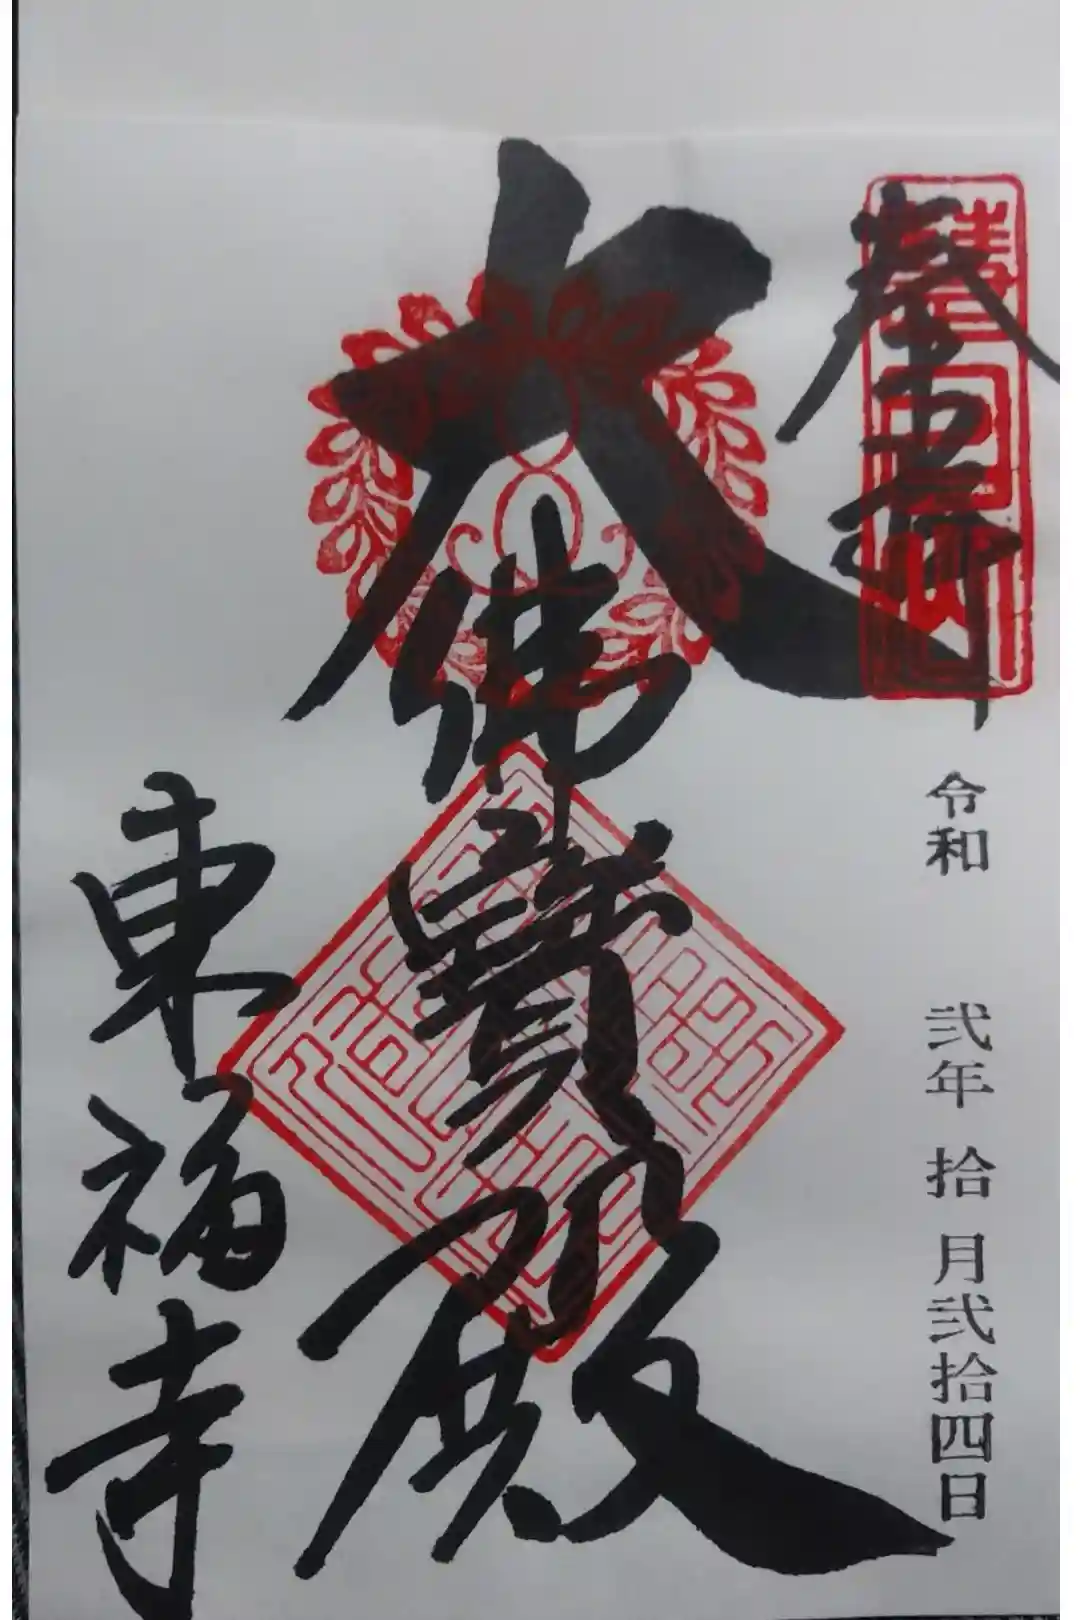 奉拝
令和 弐年 拾月弐拾四日
大佛寶殿
東福寺